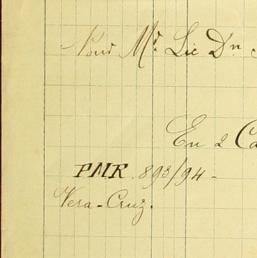 Pour Mr. Lic Dn
En 2 Ca
PMR. 893/94-
Vera-Cruz.